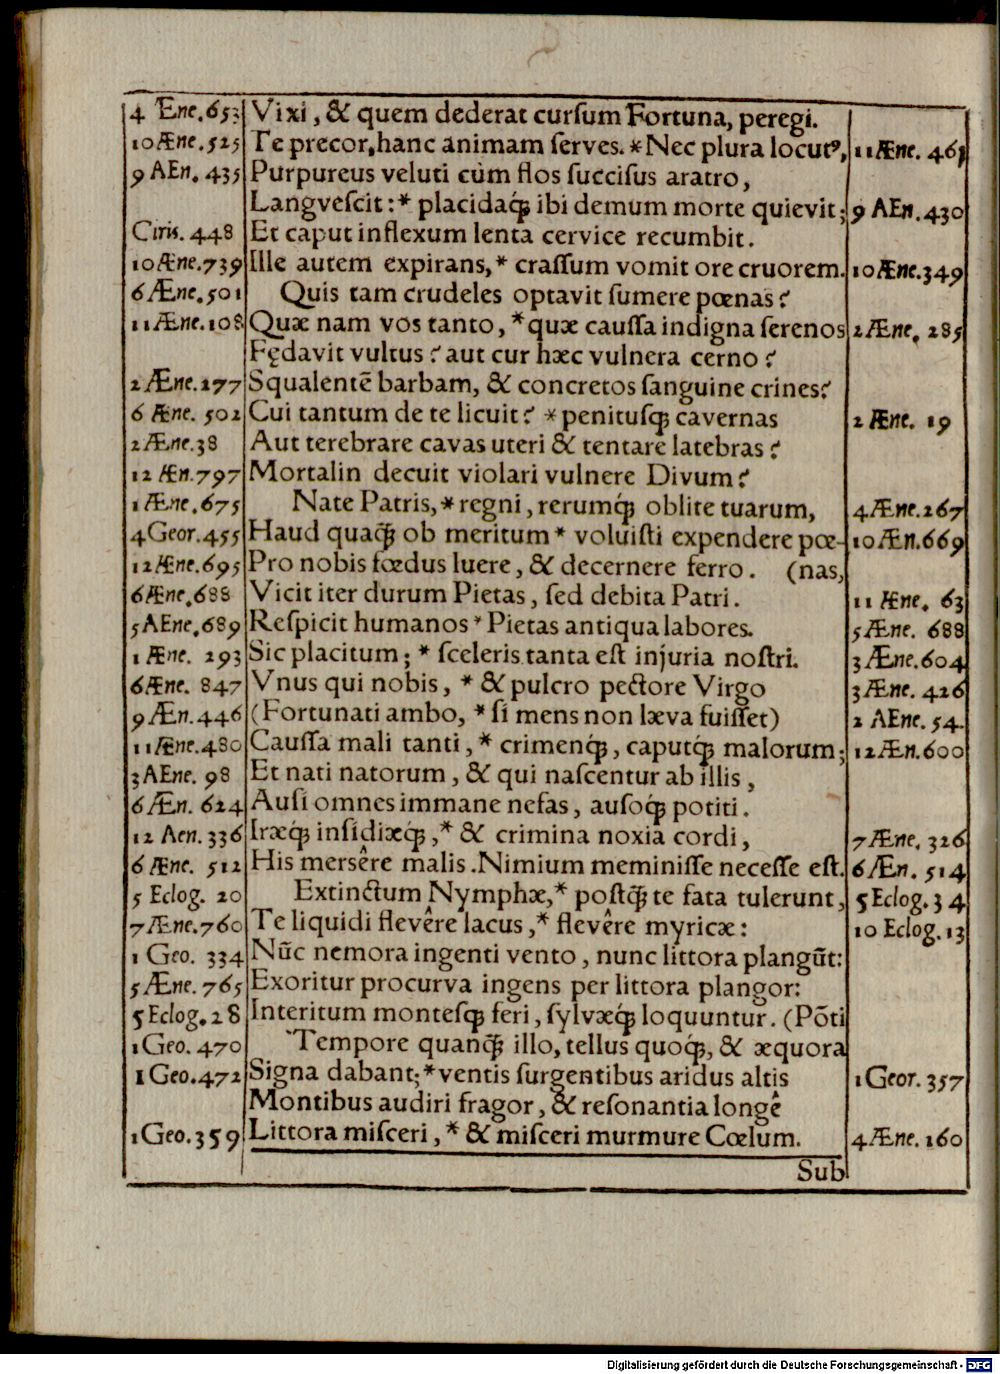 4 Ene. 653 Vixi, & quem dederat curſum Fortuna, peregi.
10 Æne. 525 Te precor, hanc animam ſerves. * Nec plura locutꝰ, 11 Æne. 463
9 AEn. 435 Purpureus veluti cùm flos ſucciſus aratro,
Langveſcit: * placidaq́; ibi demum morte quievit; 9 AEn. 430
Ciris. 448 Et caput inflexum lenta cervice recumbit.
10 Æne. 739 Ille autem expirans, * craſſum vomit ore cruorem. 10 Æne. 349
6 Æne. 501 Quis tam crudeles optavit ſumere pœnas?
11 Æne. 108 Quæ nam vos tanto, * quæ cauſſa indigna ſerenos 2 Æne. 285
Fędavit vultus? aut cur hæc vulnera cerno?
2 Æne. 277 Squalentē barbam, & concretos ſanguine crines?
6 Æne. 502 Cui tantum de te licuit? * penituſq; cavernas 2 Æne. 19
2 Æne. 38 Aut terebrare cavas uteri & tentare latebras?
12 Æn. 797 Mortalin decuit violari vulnere Divum?
1 Æne. 675 Nate Patris, * regni, rerumq́; oblite tuarum, 4 Æne. 267
4 Geor. 455 Haud quaq̃; ob meritum * voluiſti expendere pœ- 10 Æn. 669
12 Æne. 695 Pro nobis fœdus luere, & decernere ferro. (nas,
6 Æne. 688 Vicit iter durum Pietas, ſed debita Patri. 11 Æne. 63
5 AEne. 689 Reſpicit humanos * Pietas antiqua labores. 5 Æne. 688
1 Æne. 293 Sic placitum; * ſceleris tanta eſt injuria noſtri. 3 Æne. 604
6 Æne. 847 Vnus qui nobis, * & pulcro pectore Virgo 3 Æne. 426
9 Æn. 446 (Fortunati ambo, * ſi mens non læva fuiſſet) 2 AEne. 54
11 Æne. 480 Cauſſa mali tanti, * crimenq́;, caputq́; malorum; 12 Æn. 600
3 AEne. 98 Et nati natorum, & qui naſcentur ab illis,
6 Æn. 624 Auſi omnes immane nefas, auſoq́; potiti.
12 Aen. 336 Iræq́; inſidiæq́;, * & crimina noxia cordi, 7 Æne. 326
6 Æne. 512 His merſêre malis. Nimium meminiſſe neceſſe eſt. 6 Æn. 514
5 Eclog. 20 Extinctum Nymphæ, * poſtq̃; te fata tulerunt, 5 Eclog. 34
7 Æne. 760 Te liquidi flevêre lacus, * flevêre myricæ: 10 Eclog. 13
1 Geo. 334 Nũc nemora ingenti vento, nunc littora plangũt:
5 Æne. 765 Exoritur procurva ingens per littora plangor:
5 Eclog. 28 Interitum monteſq; feri, ſylvæq́; loquuntur. (Põti
1 Geo. 470 Tempore quanq̃; illo, tellus quoq́;, & æquora
1 Geo. 472 Signa dabant; * ventis ſurgentibus aridus altis 1 Geor. 357
Montibus audiri fragor, & reſonantia longê
1 Geo. 359 Littora miſceri, * & miſceri murmure Cœlum. 4 Æne. 160
Sub
Digitalisierung gefördert durch die Deutsche Forschungsgemeinschaft - DFG